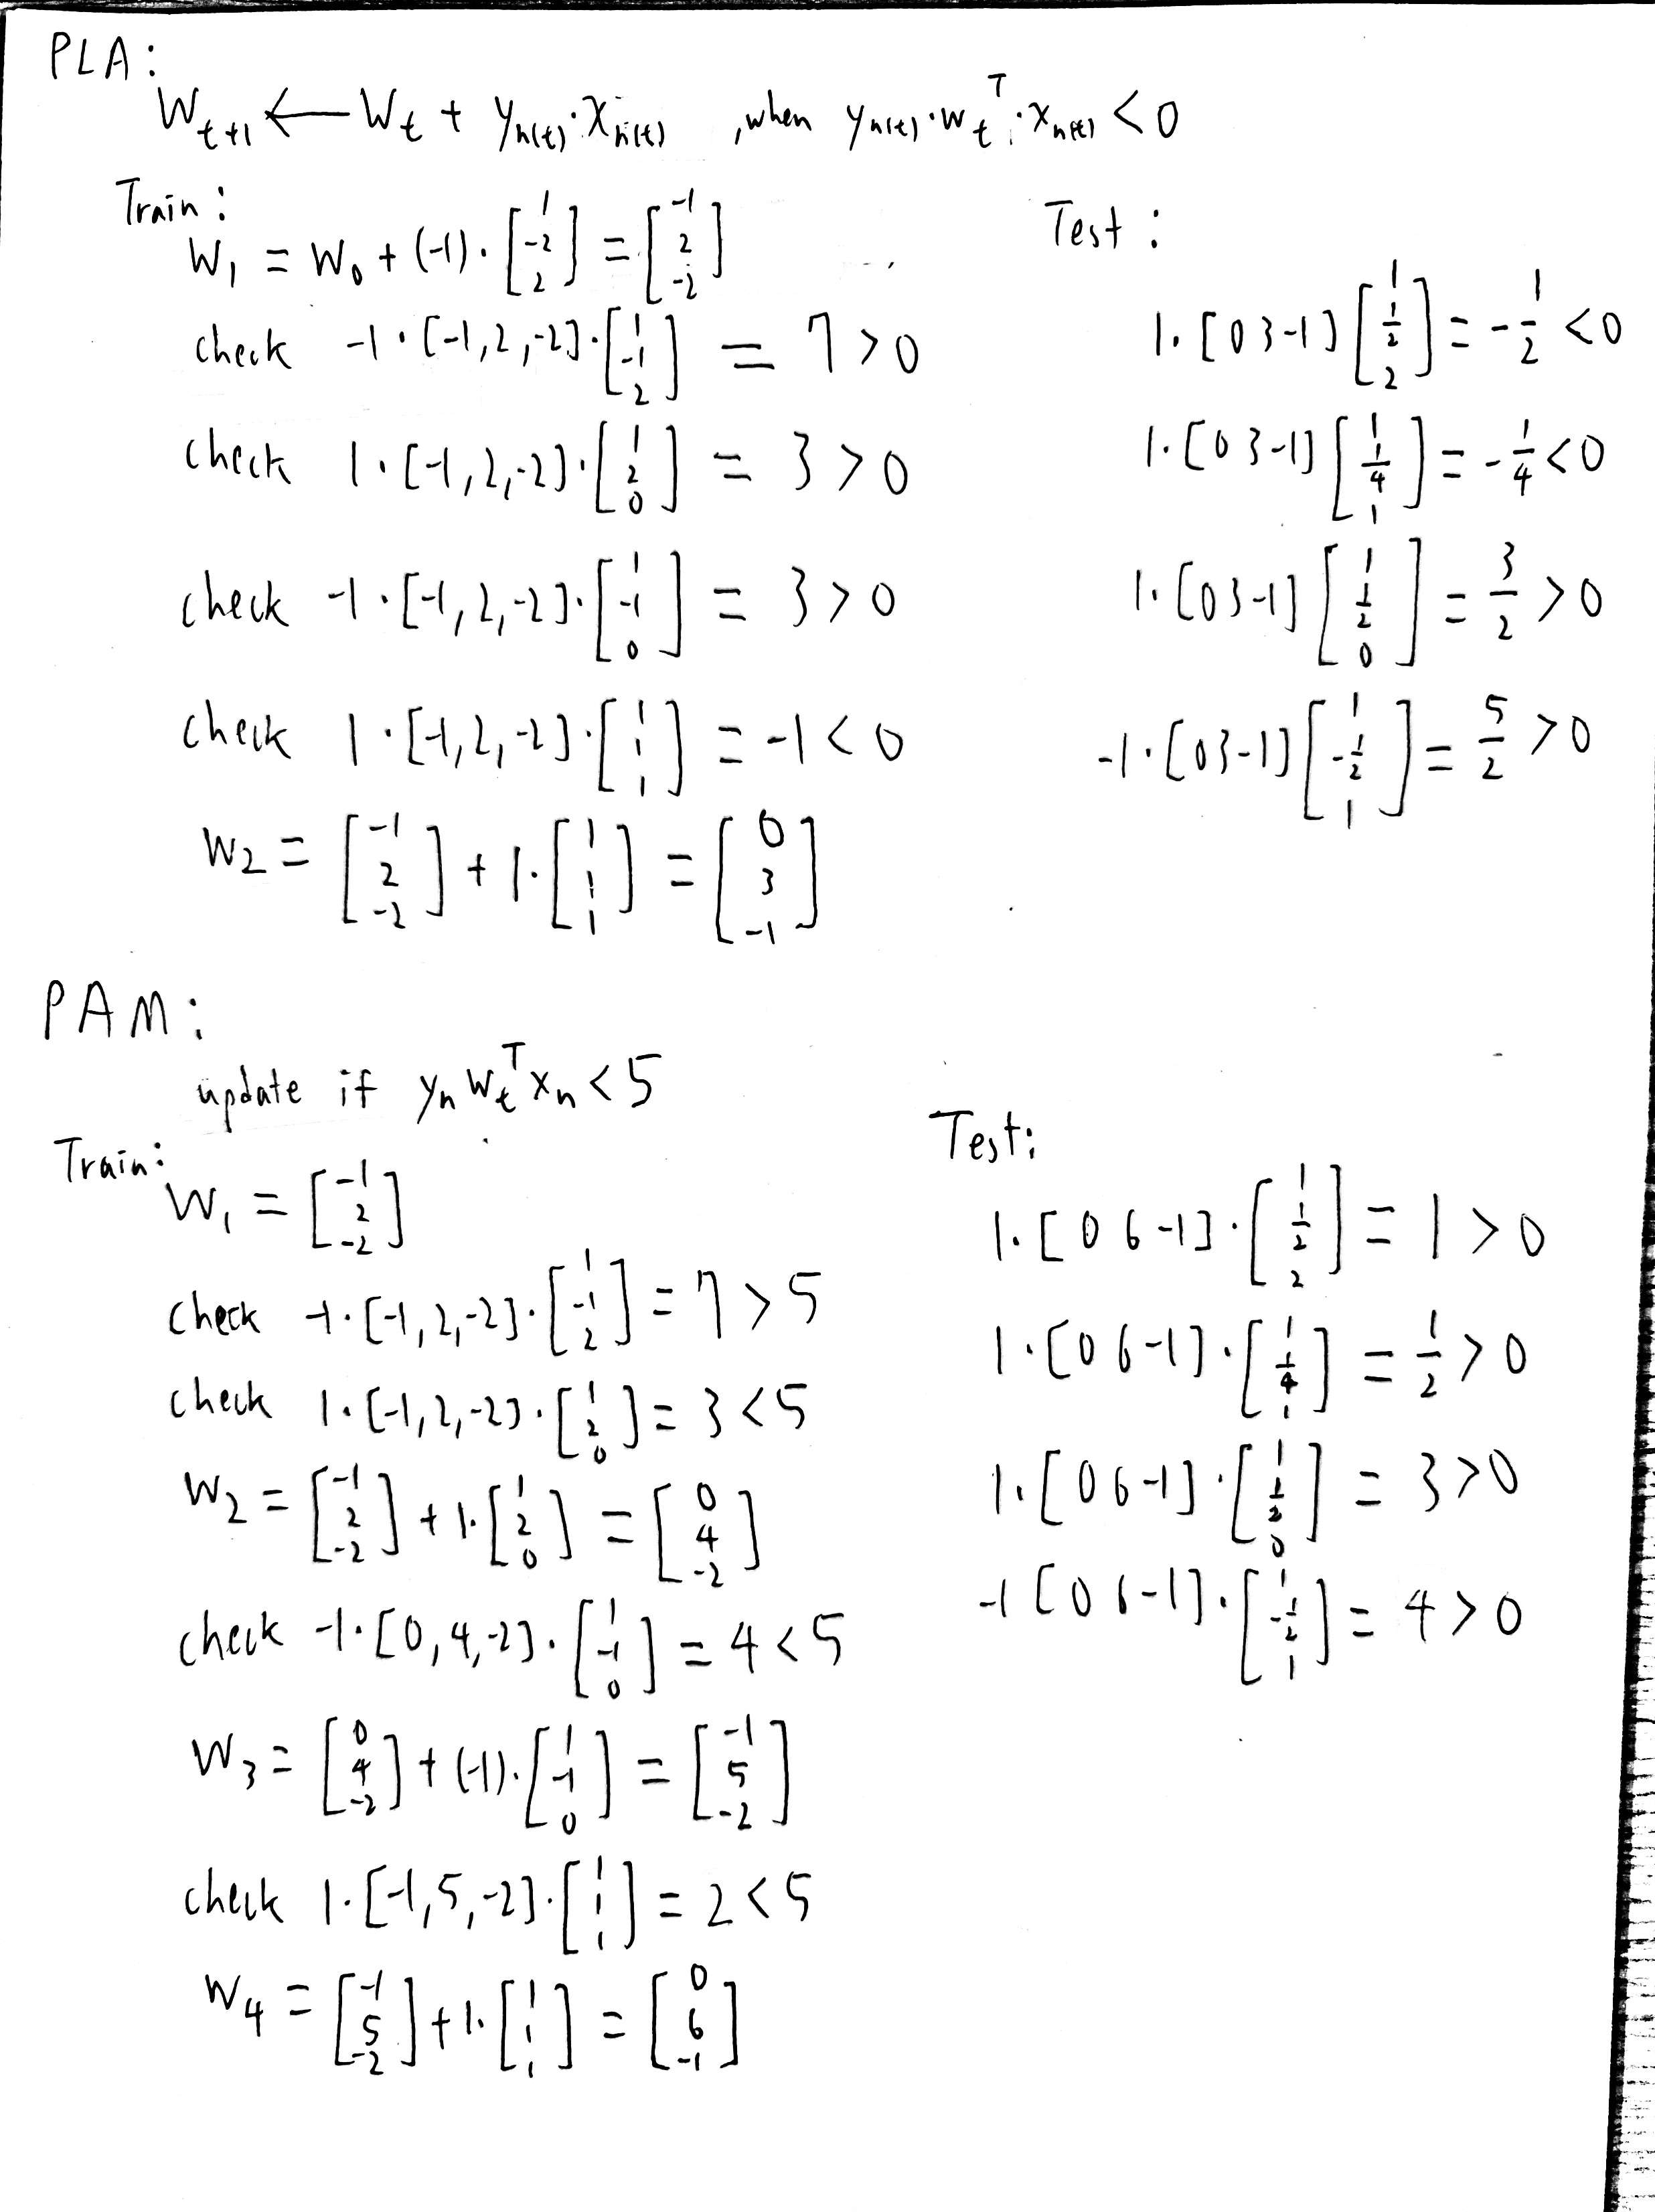 PLA:
W_{t+1} ← W_t + y_{n(t)}·x_{n(t)} , when y_{n(t)}·w_t^T·x_{n(t)} < 0
Train:
W_1 = W_0 + (-1)·[1 -2 2] = [-1 2 -2]
check -1·[-1,2,-2]·[1 -1 2] = 7 > 0
check 1·[-1,2,-2]·[1 2 0] = 3 > 0
check -1·[-1,2,-2]·[1 -1 0] = 3 > 0
check 1·[-1,2,-2]·[1 1 1] = -1 < 0
W_2 = [-1 2 -2] + 1·[1 1 1] = [0 3 -1]
Test:
1·[0 3 -1][1 1/2 2] = -1/2 < 0
1·[0 3 -1][1 1/4 1] = -1/4 < 0
1·[0 3 -1][1 1/2 0] = 3/2 > 0
-1·[0 3 -1][1 -1/2 1] = 5/2 > 0
PAM:
update if y_n W_t^T x_n < 5
Train:
W_1 = [-1 2 -2]
check -1·[-1,2,-2]·[1 -1 2] = 7 > 5
check 1·[-1,2,-2]·[1 2 0] = 3 < 5
W_2 = [-1 2 -2] + 1·[1 2 0] = [0 4 -2]
check -1·[0,4,-2]·[1 -1 0] = 4 < 5
W_3 = [0 4 -2] + (-1)·[1 -1 0] = [-1 5 -2]
check 1·[-1,5,-2]·[1 1 1] = 2 < 5
W_4 = [-1 5 -2] + 1·[1 1 1] = [0 6 -1]
Test:
1·[0 6 -1]·[1 1/2 2] = 1 > 0
1·[0 6 -1]·[1 1/4 1] = 1/2 > 0
1·[0 6 -1]·[1 1/2 0] = 3 > 0
-1[0 6 -1]·[1 -1/2 1] = 4 > 0